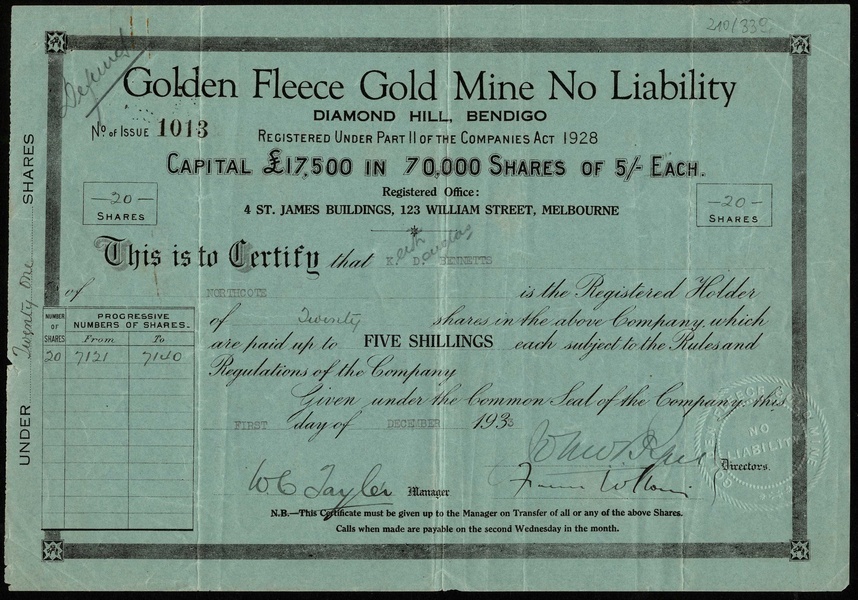 210/339
Defunct
Golden Fleece Gold Mine No Liability
DIAMOND HILL, BENDIGO
No of Issue 1013
Registered Under Part II of the Companies Act 1928
Capital £17,500 in 70,000 Shares of 5/- Each.
Registered Office:
4 ST. JAMES BUILDINGS, 123 WILLIAM STREET, MELBOURNE
—20—
Shares
—20—
Shares
UNDER Twenty One SHARES
This is to Certify that Keith Douglas BENNETTS
of NORTHCOTE is the Registered Holder
of Twenty shares in the above Company, which
are paid up to FIVE SHILLINGS each subject to the Rules and
Regulations of the Company
Given under the Common Seal of the Company this
FIRST day of DECEMBER 1933
NUMBER OF SHARES
PROGRESSIVE NUMBERS OF SHARES.
From To
20 7121 7140
NO LIABILITY
Directors.
W C Tayler Manager
N.B.—This Certificate must be given up to the Manager on Transfer of all or any of the above Shares.
Calls when made are payable on the second Wednesday in the month.